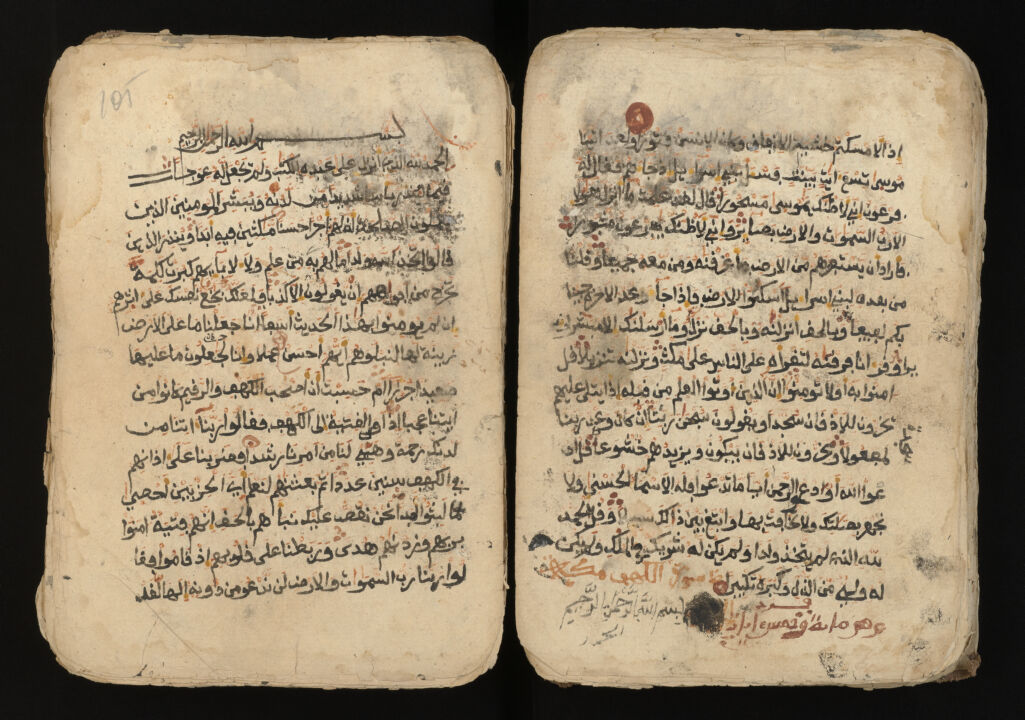 اذا لامسكتم خشية الانفاق وكان الانسن قتورا ولقد اتينا
موسى تسع ايت بينت فسل بني اسراءيل اذ جاءهم فقال له
فرعون اني لاظنك يموسى مسحورا قال لقد علمت ما انزل هؤلا
الا رب السموت والارض بصاير واني لاظنك يفرعون مثبورا
فاراد ان يستفزهم من الارض فاغرقنه ومن معه جميعا وقلنا
من بعده لبني اسراءيل اسكنوا الارض فاذا جا وعد الاخرة جينا
بكم لفيفا وبالحق انزلنه وبالحق نزل وما ارسلنك الا مبشرا و
نذيرا وقرانا فرقنه لتقراه على الناس على مكث ونزلنه تنزيلا قل
امنوا به اولا تومنوا ان الذين اوتوا العلم من قبله اذا يتلى عليهم
يخرون للاذقان سجدا ويقولون سبحن ربنا ان كان وعد ربنا
لمفعولا ويخرون للاذقان يبكون ويزيدهم خشوعا قل اد
عوا الله او ادعوا الرحمن ايا ما تدعوا فله الاسما الحسنى ولا
تجهر بصلتك ولا تخافت بها وابتغ بين ذالك سبيلا وقل الحمد
لله الذي لم يتخذ ولدا ولم يكن له شريك في الملك ولم يكن
له ولي من الذل وكبره تكبيرا
سورة الكهف مكية
وهو ماية وخمس اية
بسم الله الرحمن الرحيم
الحمد
105
بسم الله الرحمن الرحيم
الحمد لله الذي انزل على عبده الكتب ولم يجعل له عوجا
قيما لينذر باسا شديدا من لدنه ويبشر المومنين الذين
يعملون الصلحت ان لهم اجرا حسنا مكثين فيه ابدا وينذر الذين
قالوا اتخذ الله ولدا ما لهم به من علم ولا لابايهم كبرت كلمة
تخرج من افواههم ان يقولون الا كذبا فلعلك بخع نفسك على اثرهم
ان لم يومنوا بهذا الحديث اسفا انا جعلنا ما على الارض
زينة لها لنبلوهم ايهم احسن عملا وانا لجعلون ما عليها
صعيدا جرزا ام حسبت ان اصحب الكهف والرقيم كانوا من
ايتنا عجبا اذ اوى الفتية الى الكهف فقالوا ربنا اتنا من
لدنك رحمة وهيي لنا من امرنا رشدا فضربنا على اذانهم
في الكهف سنين عددا ثم بعثنهم لنعلم اي الحزبين احصى
لما لبثوا امدا نحن نقص عليك نباهم بالحق انهم فتية امنوا
بربهم وزدنهم هدى وربطنا على قلوبهم اذ قاموا فقا
لوا ربنا رب السموات والارض لن ندعوا من دونه الها لقد